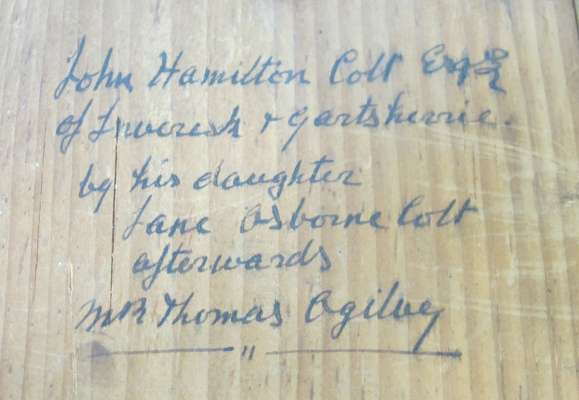 John Hamilton Colt Esqr
of Inveresk & Gartsherrie.
by his daughter
Jane Osborne Colt
afterwards
Mrs Thomas Ogilvy
"